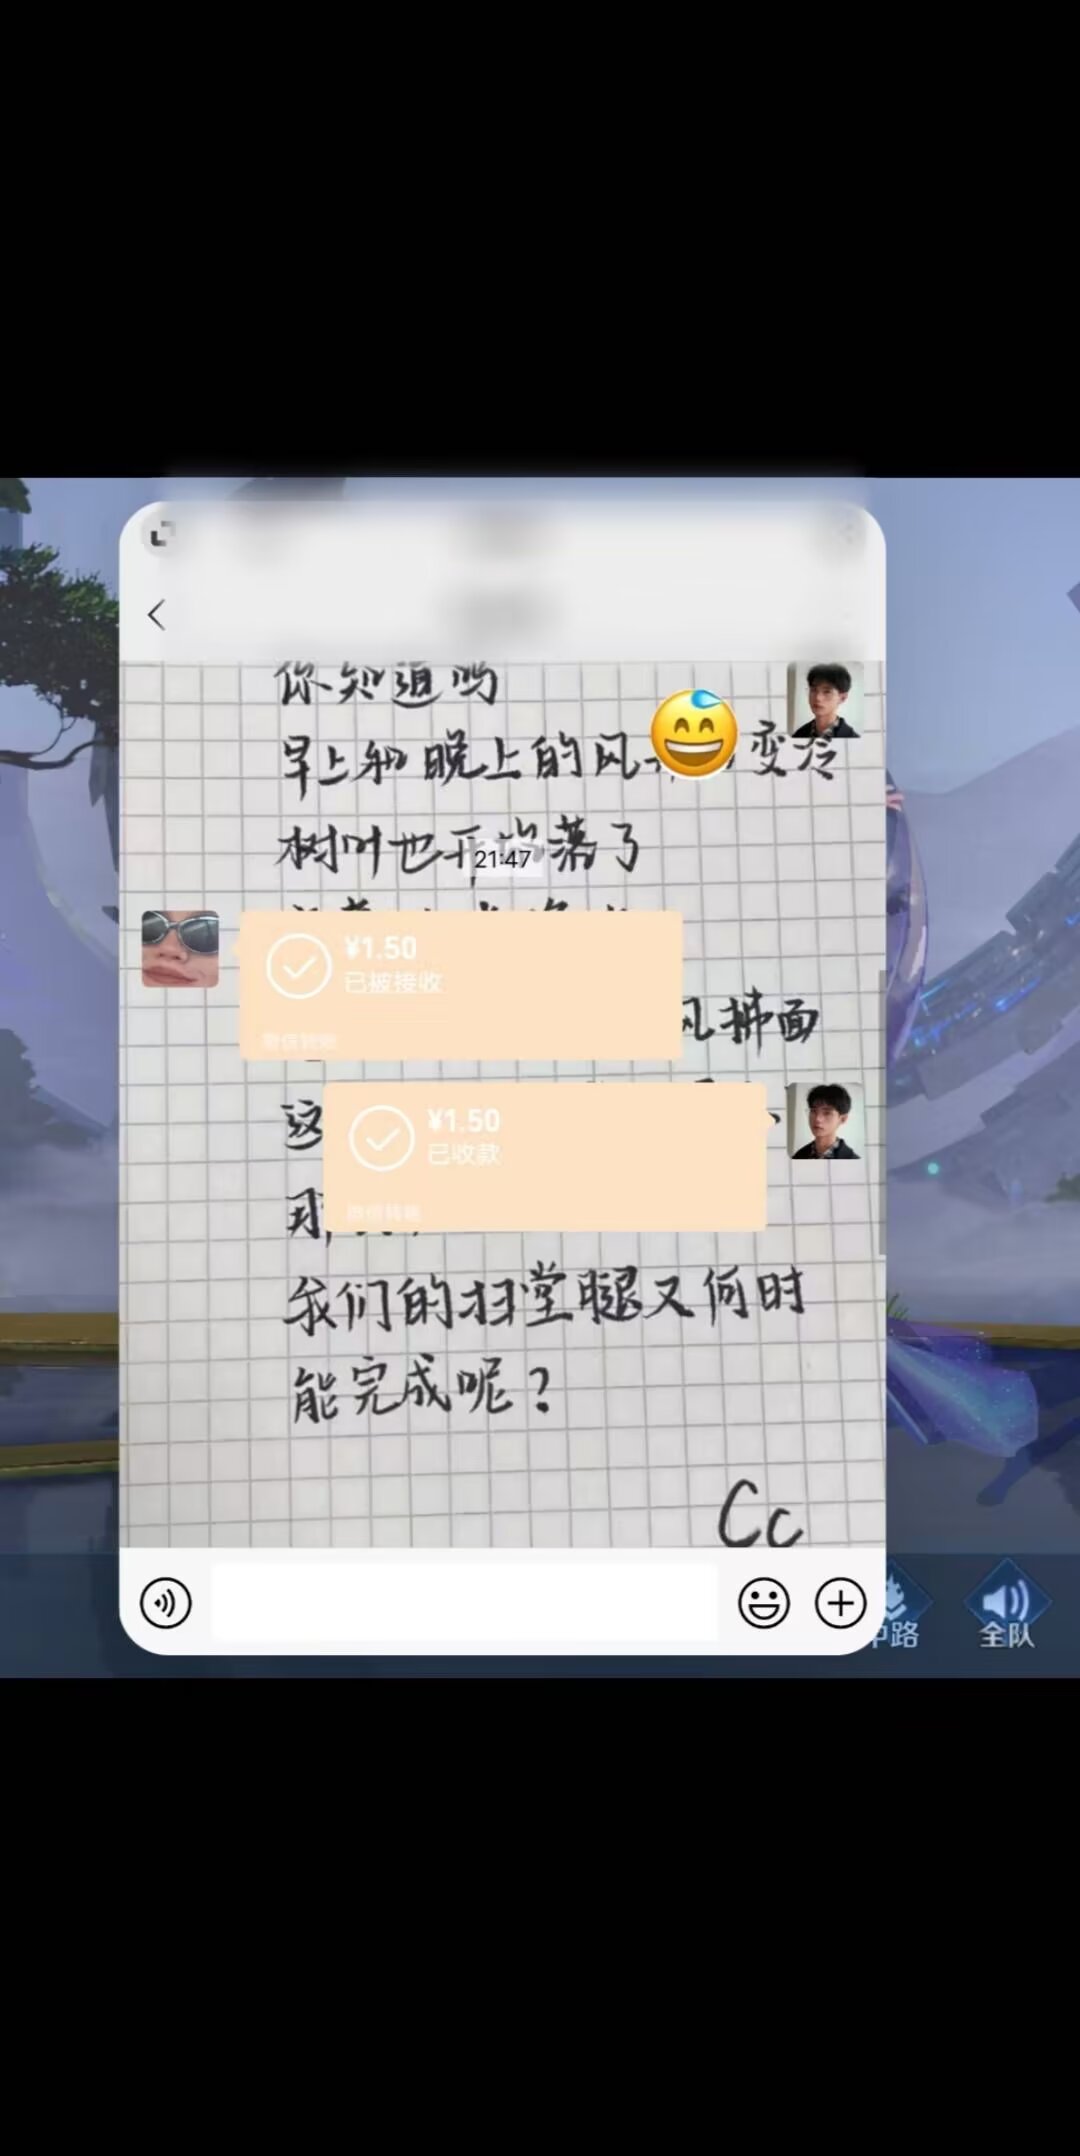 你知道吗
早上和晚上的风
变冷
树叶也开始落了
21:47
¥1.50
已被接收
微信转账
风拂面
这
¥1.50
已收款
微信转账
那
我们的扫堂腿又何时
能完成呢？
Cc
中路
全队